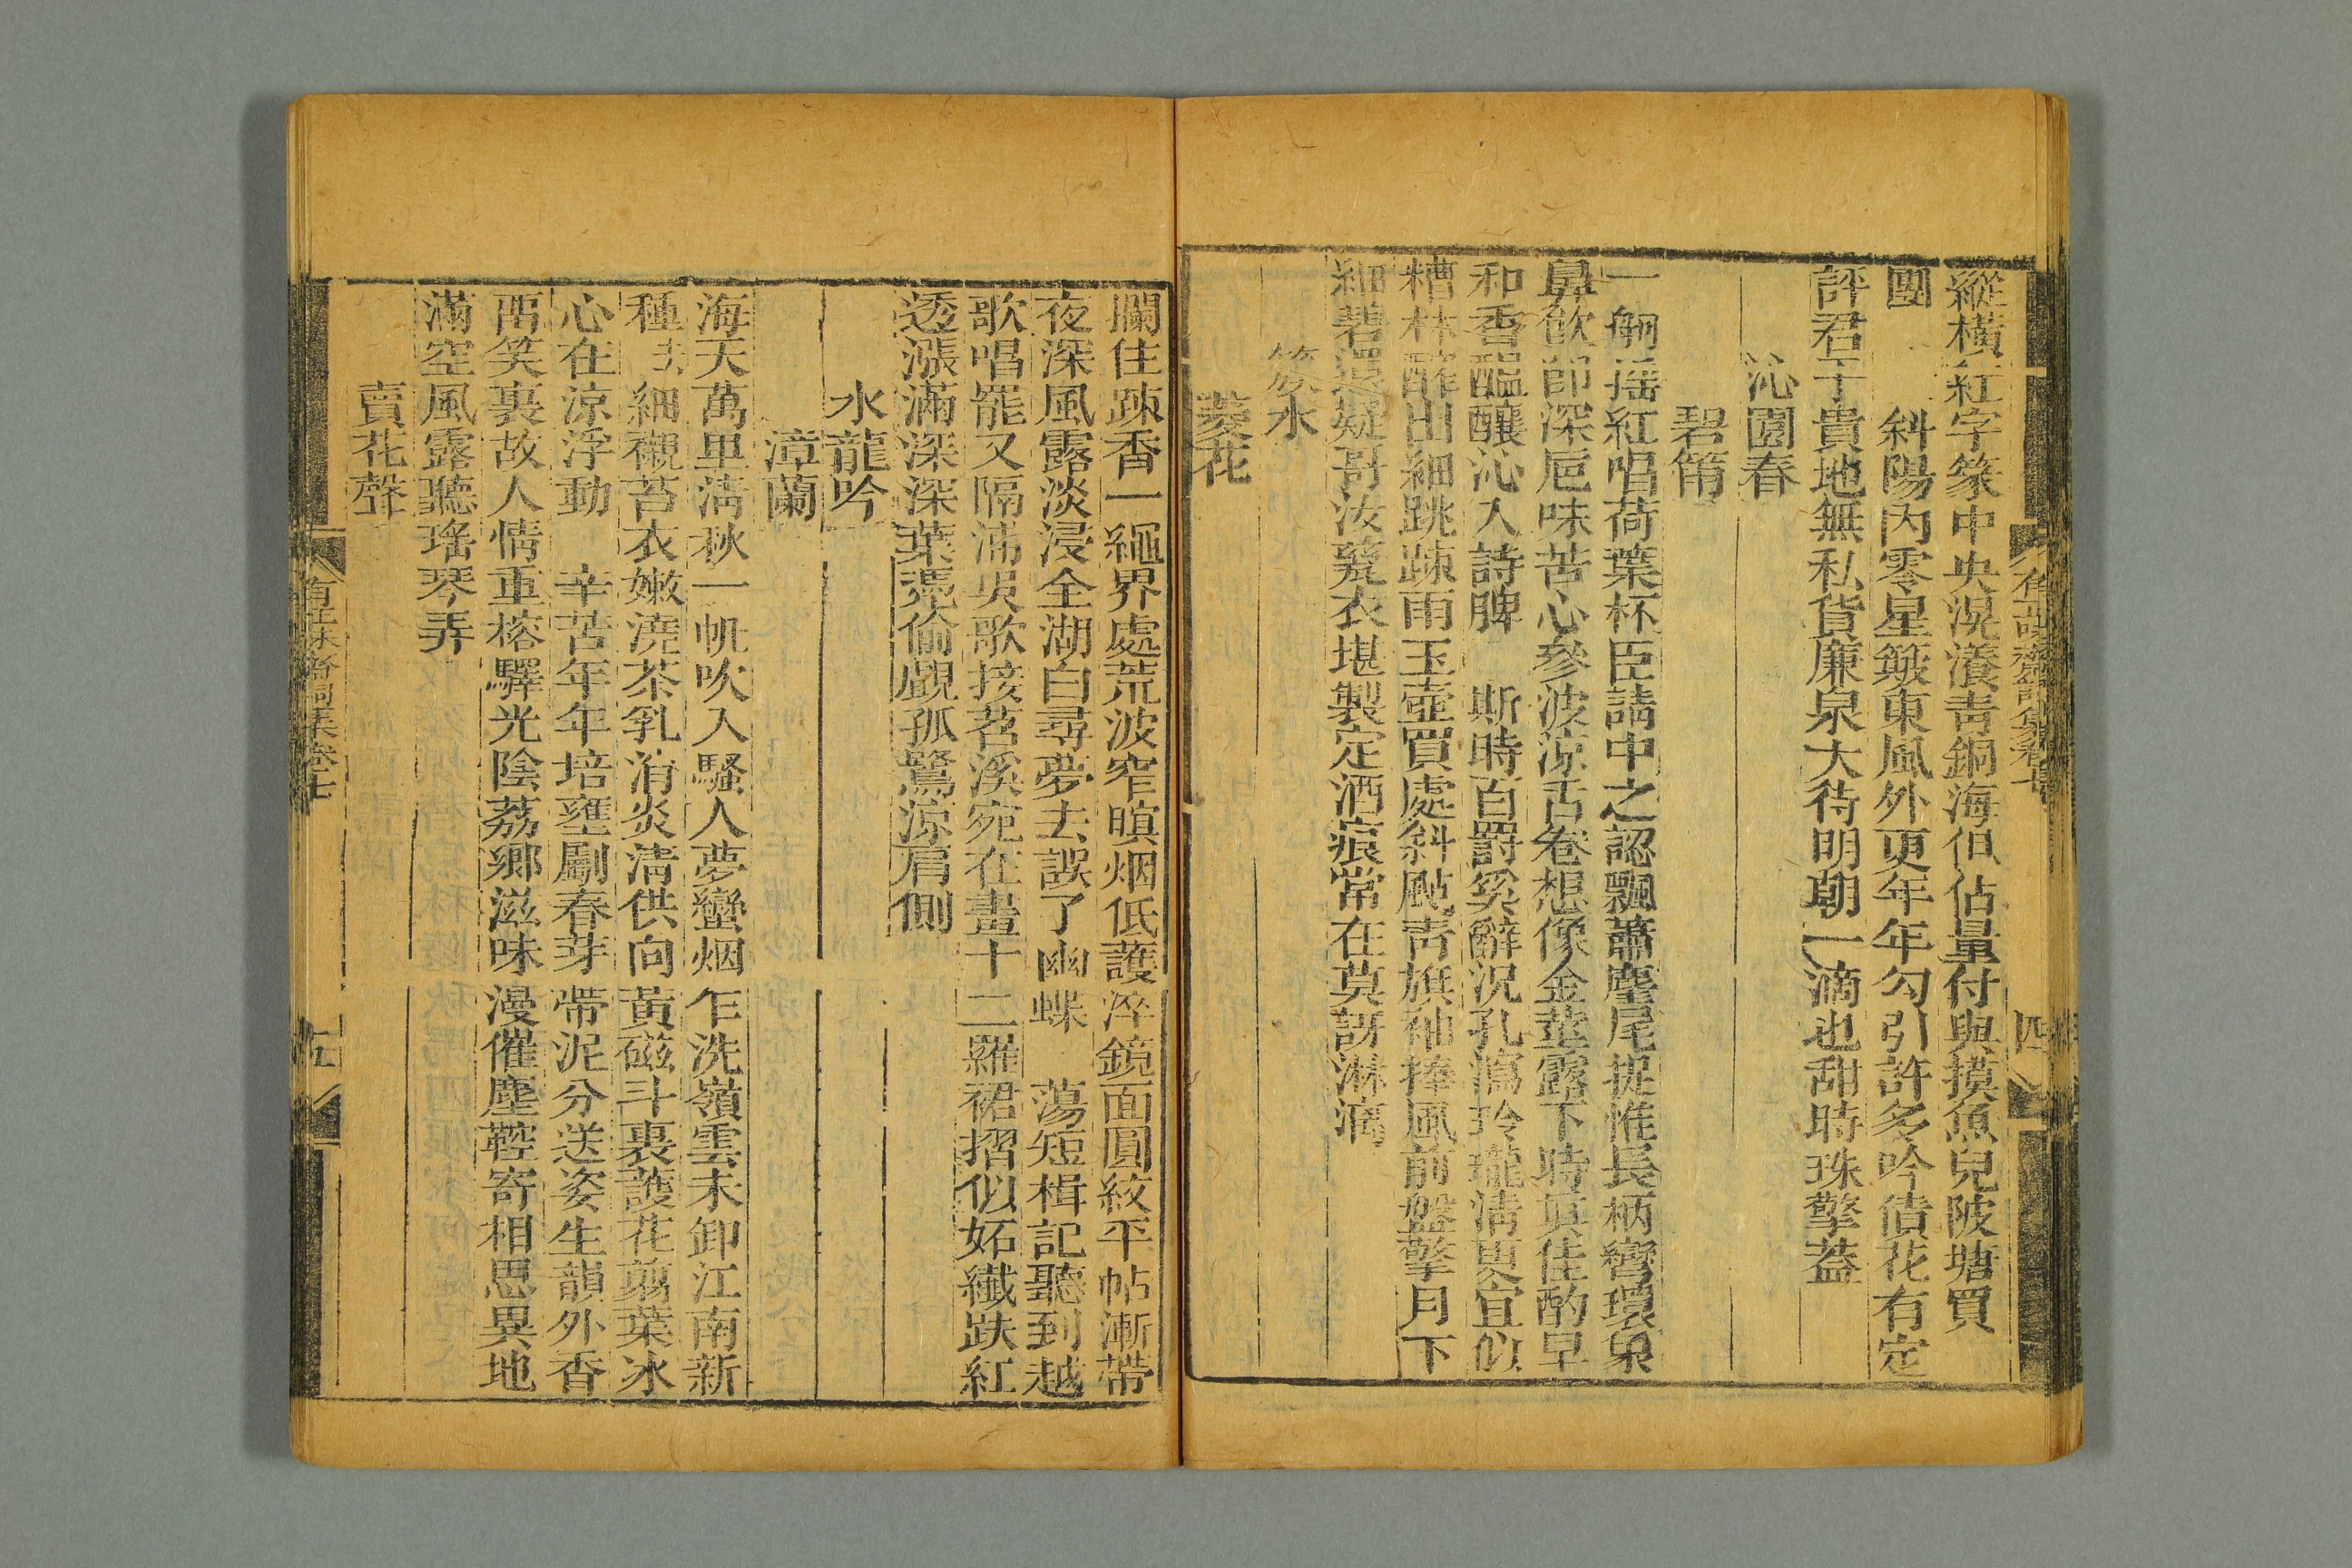 縱橫紅字篆中央滉瀁青銅海但佔量付與摸魚兒陂塘買
團 斜陽內零星簸東風外更年年勾引許多吟債花有定
評君子貴地無私貨廉泉大待明朝一滴也甜時珠擎蓋
沁園春
碧筩
一舸搖紅唱荷葉杯臣請中之認飄蕭麈尾捉惟長柄彎環象
鼻飲卽深巵味苦心參波涼舌卷想像金莖露下時眞佳酌早
和香醞釀沁入詩脾 斯時百罰奚辭況孔瀉玲瓏淸更宜似
糟牀醡出細跳疎雨玉壺買處斜颭靑旗袖捧風前盤擎月下
細碧還疑哥汝窰衣堪製定酒痕常在莫訝淋漓
菱花
攔住疎香一繩界處荒波窄瞋烟低護淬鏡面圓紋平帖漸帶
夜深風露淡浸全湖白尋夢去誤了幽蝶 蕩短楫記聽到越
歌唱罷又隔浦吳歌接苕溪宛在畫十二羅裙摺似妬纖趺紅
透漲滿深深葉憑偷覷孤鷺涼肩側
水龍吟
漳蘭
海天萬里淸秋一帆吹入騷人夢蠻烟乍洗嶺雲未卸江南新
種 細襯苔衣嫩澆茶乳消炎淸供向黃磁斗裏護花剪葉冰
心在涼浮動 辛苦年年培壅劚春芽帶泥分送姿生韻外香
畱笑裏故人情重榕驛光陰荔鄉滋味漫催塵鞚寄相思異地
滿空風露聽瑤琴弄
賣花聲
有正味齋詞集卷七
五
四